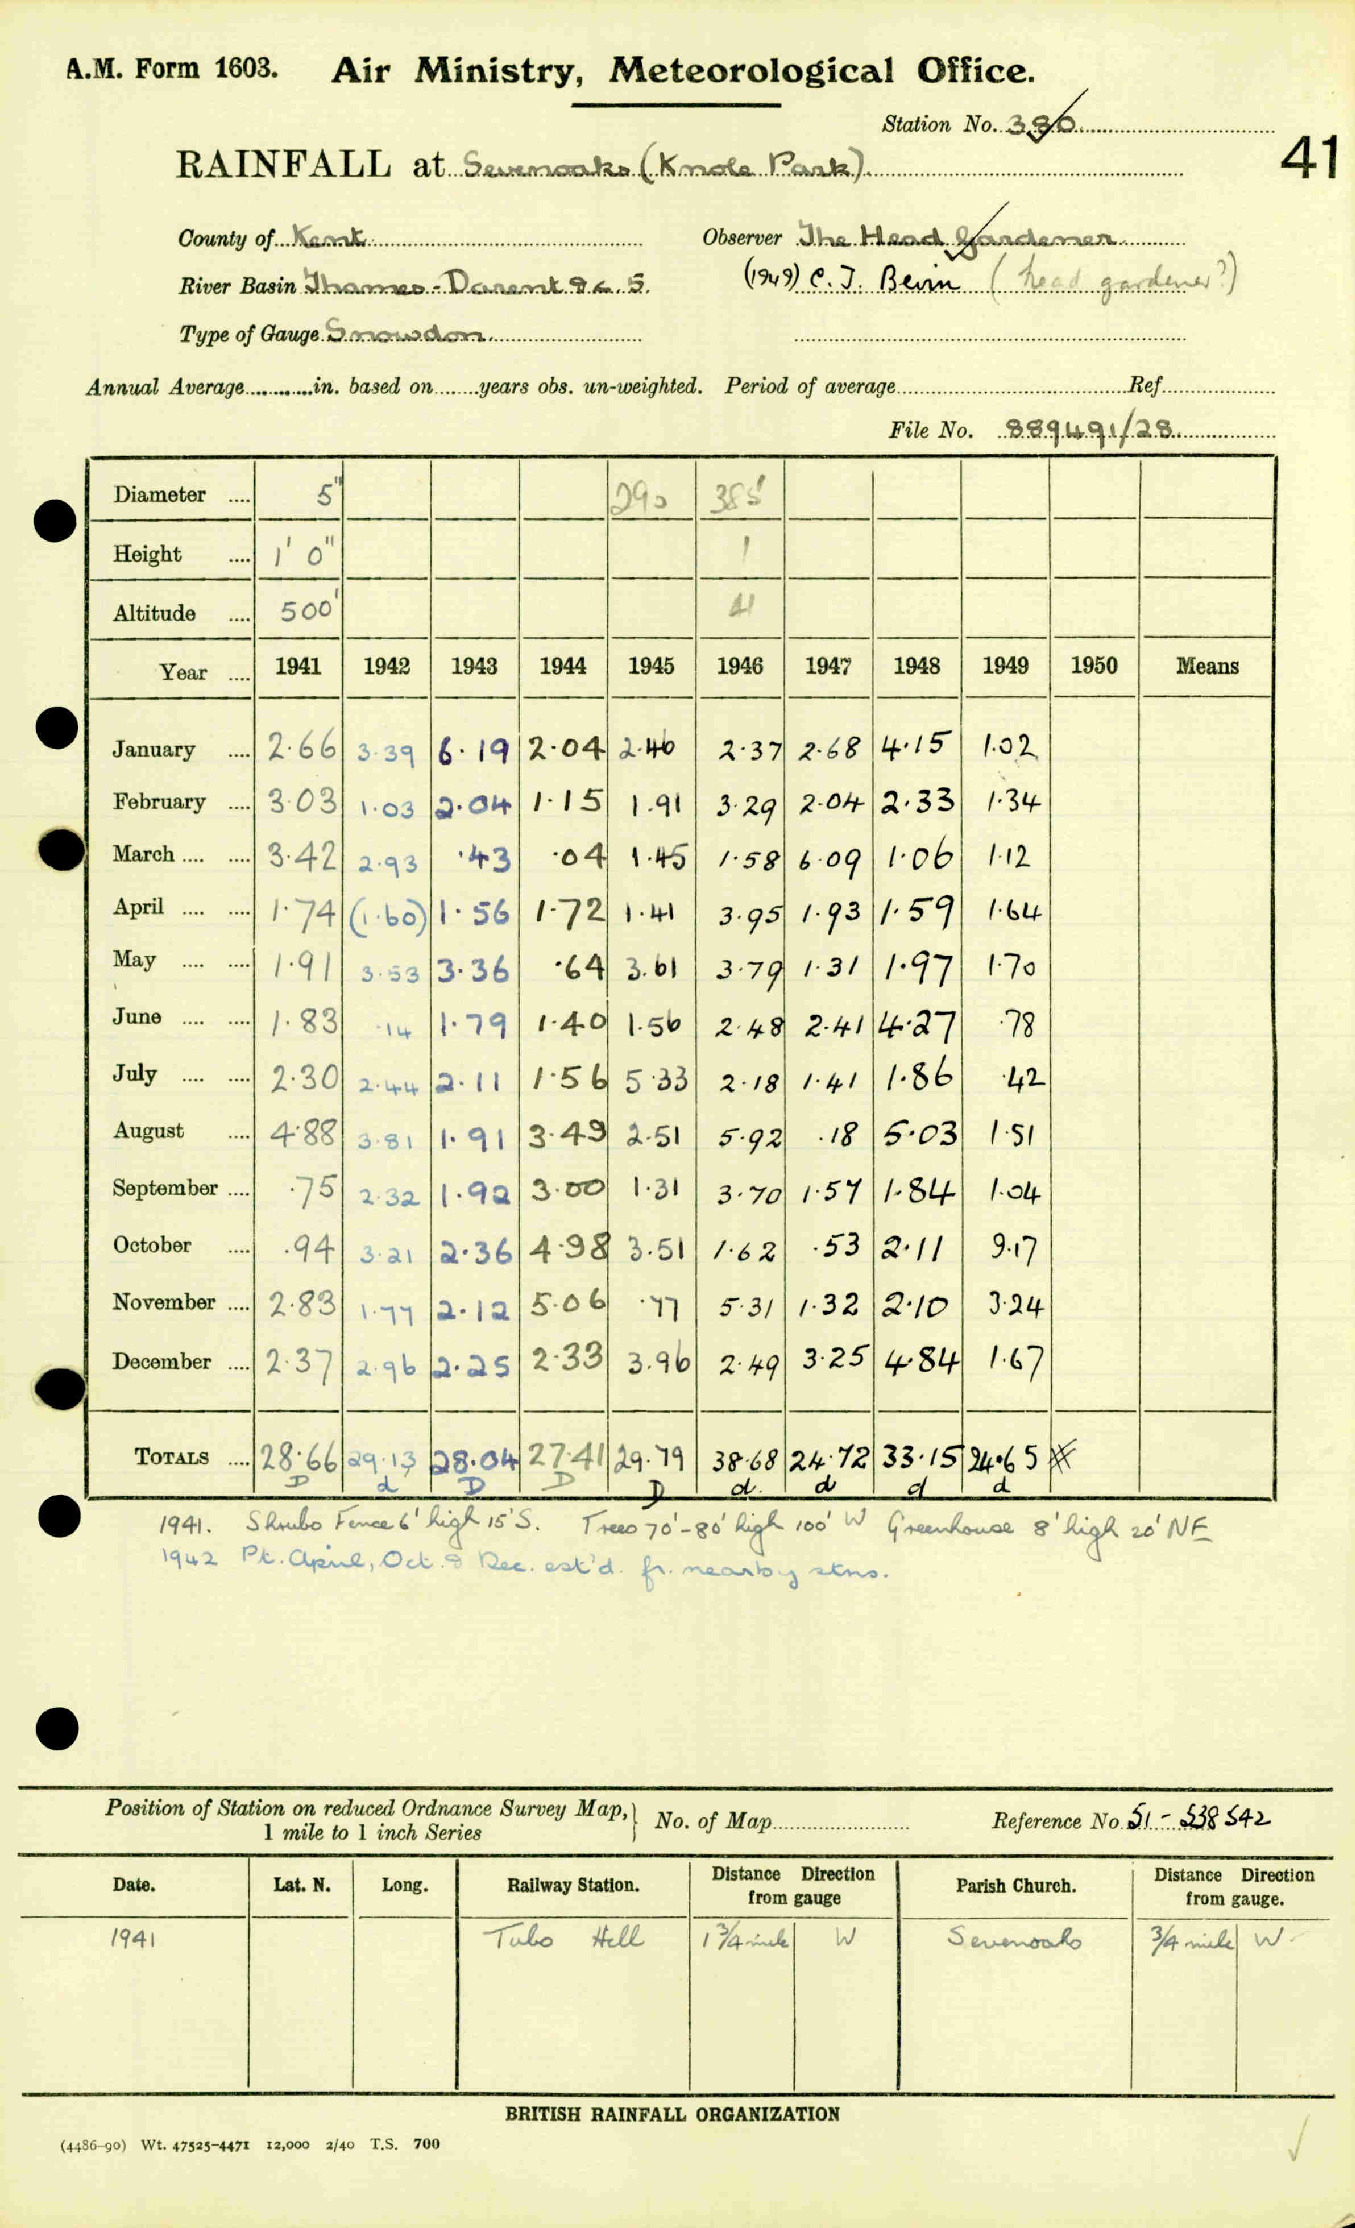 A.M. Form 1603. Air Ministry, Meteorological Office.
Station No. 380
41
RAINFALL at Sevenoaks (Knole Park)
County of Kent Observer The Head Gardener
River Basin Thames - Darent 9c.5. (1949) C. J. Bevin (head gardener?)
Type of Gauge Snowdon
Annual Average in. based on years obs. un-weighted. Period of average Ref
File No. 889491/28
Diameter .... 5" 290 385'
Height .... 1' 0" 1
Altitude .... 500' 41
Year .... 1941 1942 1943 1944 1945 1946 1947 1948 1949 1950 Means
January .... 2.66 3.39 6.19 2.04 2.46 2.37 2.68 4.15 1.02
February .... 3.03 1.03 2.04 1.15 1.91 3.29 2.04 2.33 1.34
March .... .... 3.42 2.93 .43 .04 1.45 1.58 6.09 1.06 1.12
April .... .... 1.74 (1.60) 1.56 1.72 1.41 3.95 1.93 1.59 1.64
May .... .... 1.91 3.53 3.36 .64 3.61 3.79 1.31 1.97 1.70
June .... .... 1.83 .14 1.79 1.40 1.56 2.48 2.41 4.27 .78
July .... .... 2.30 2.44 2.11 1.56 5.33 2.18 1.41 1.86 .42
August .... 4.88 3.81 1.91 3.49 2.51 5.92 .18 5.03 1.51
September .... .75 2.32 1.92 3.00 1.31 3.70 1.57 1.84 1.04
October .... .94 3.21 2.36 4.98 3.51 1.62 .53 2.11 9.17
November .... 2.83 1.77 2.12 5.06 .77 5.31 1.32 2.10 3.24
December .... 2.37 2.96 2.25 2.33 3.96 2.49 3.25 4.84 1.67
TOTALS .... 28.66 29.13 28.04 27.41 29.79 38.68 24.72 33.15 24.65
D d D D D d d d d
1941. Shrubs Fence 6' high 15' S. Trees 70'-80' high 100' W Greenhouse 8' high 20' NE
1942 Pt. April, Oct. & Dec. est'd. fr. nearby stns.
Position of Station on reduced Ordnance Survey Map, 1 mile to 1 inch Series } No. of Map Reference No 51 - 538542
Date. Lat. N. Long. Railway Station. Distance Direction from gauge Parish Church. Distance Direction from gauge.
1941 Tubs Hill 1 3/4 mile W Sevenoaks 3/4 mile W
BRITISH RAINFALL ORGANIZATION
(4486-90) Wt. 47525-4471 12,000 2/40 T.S. 700